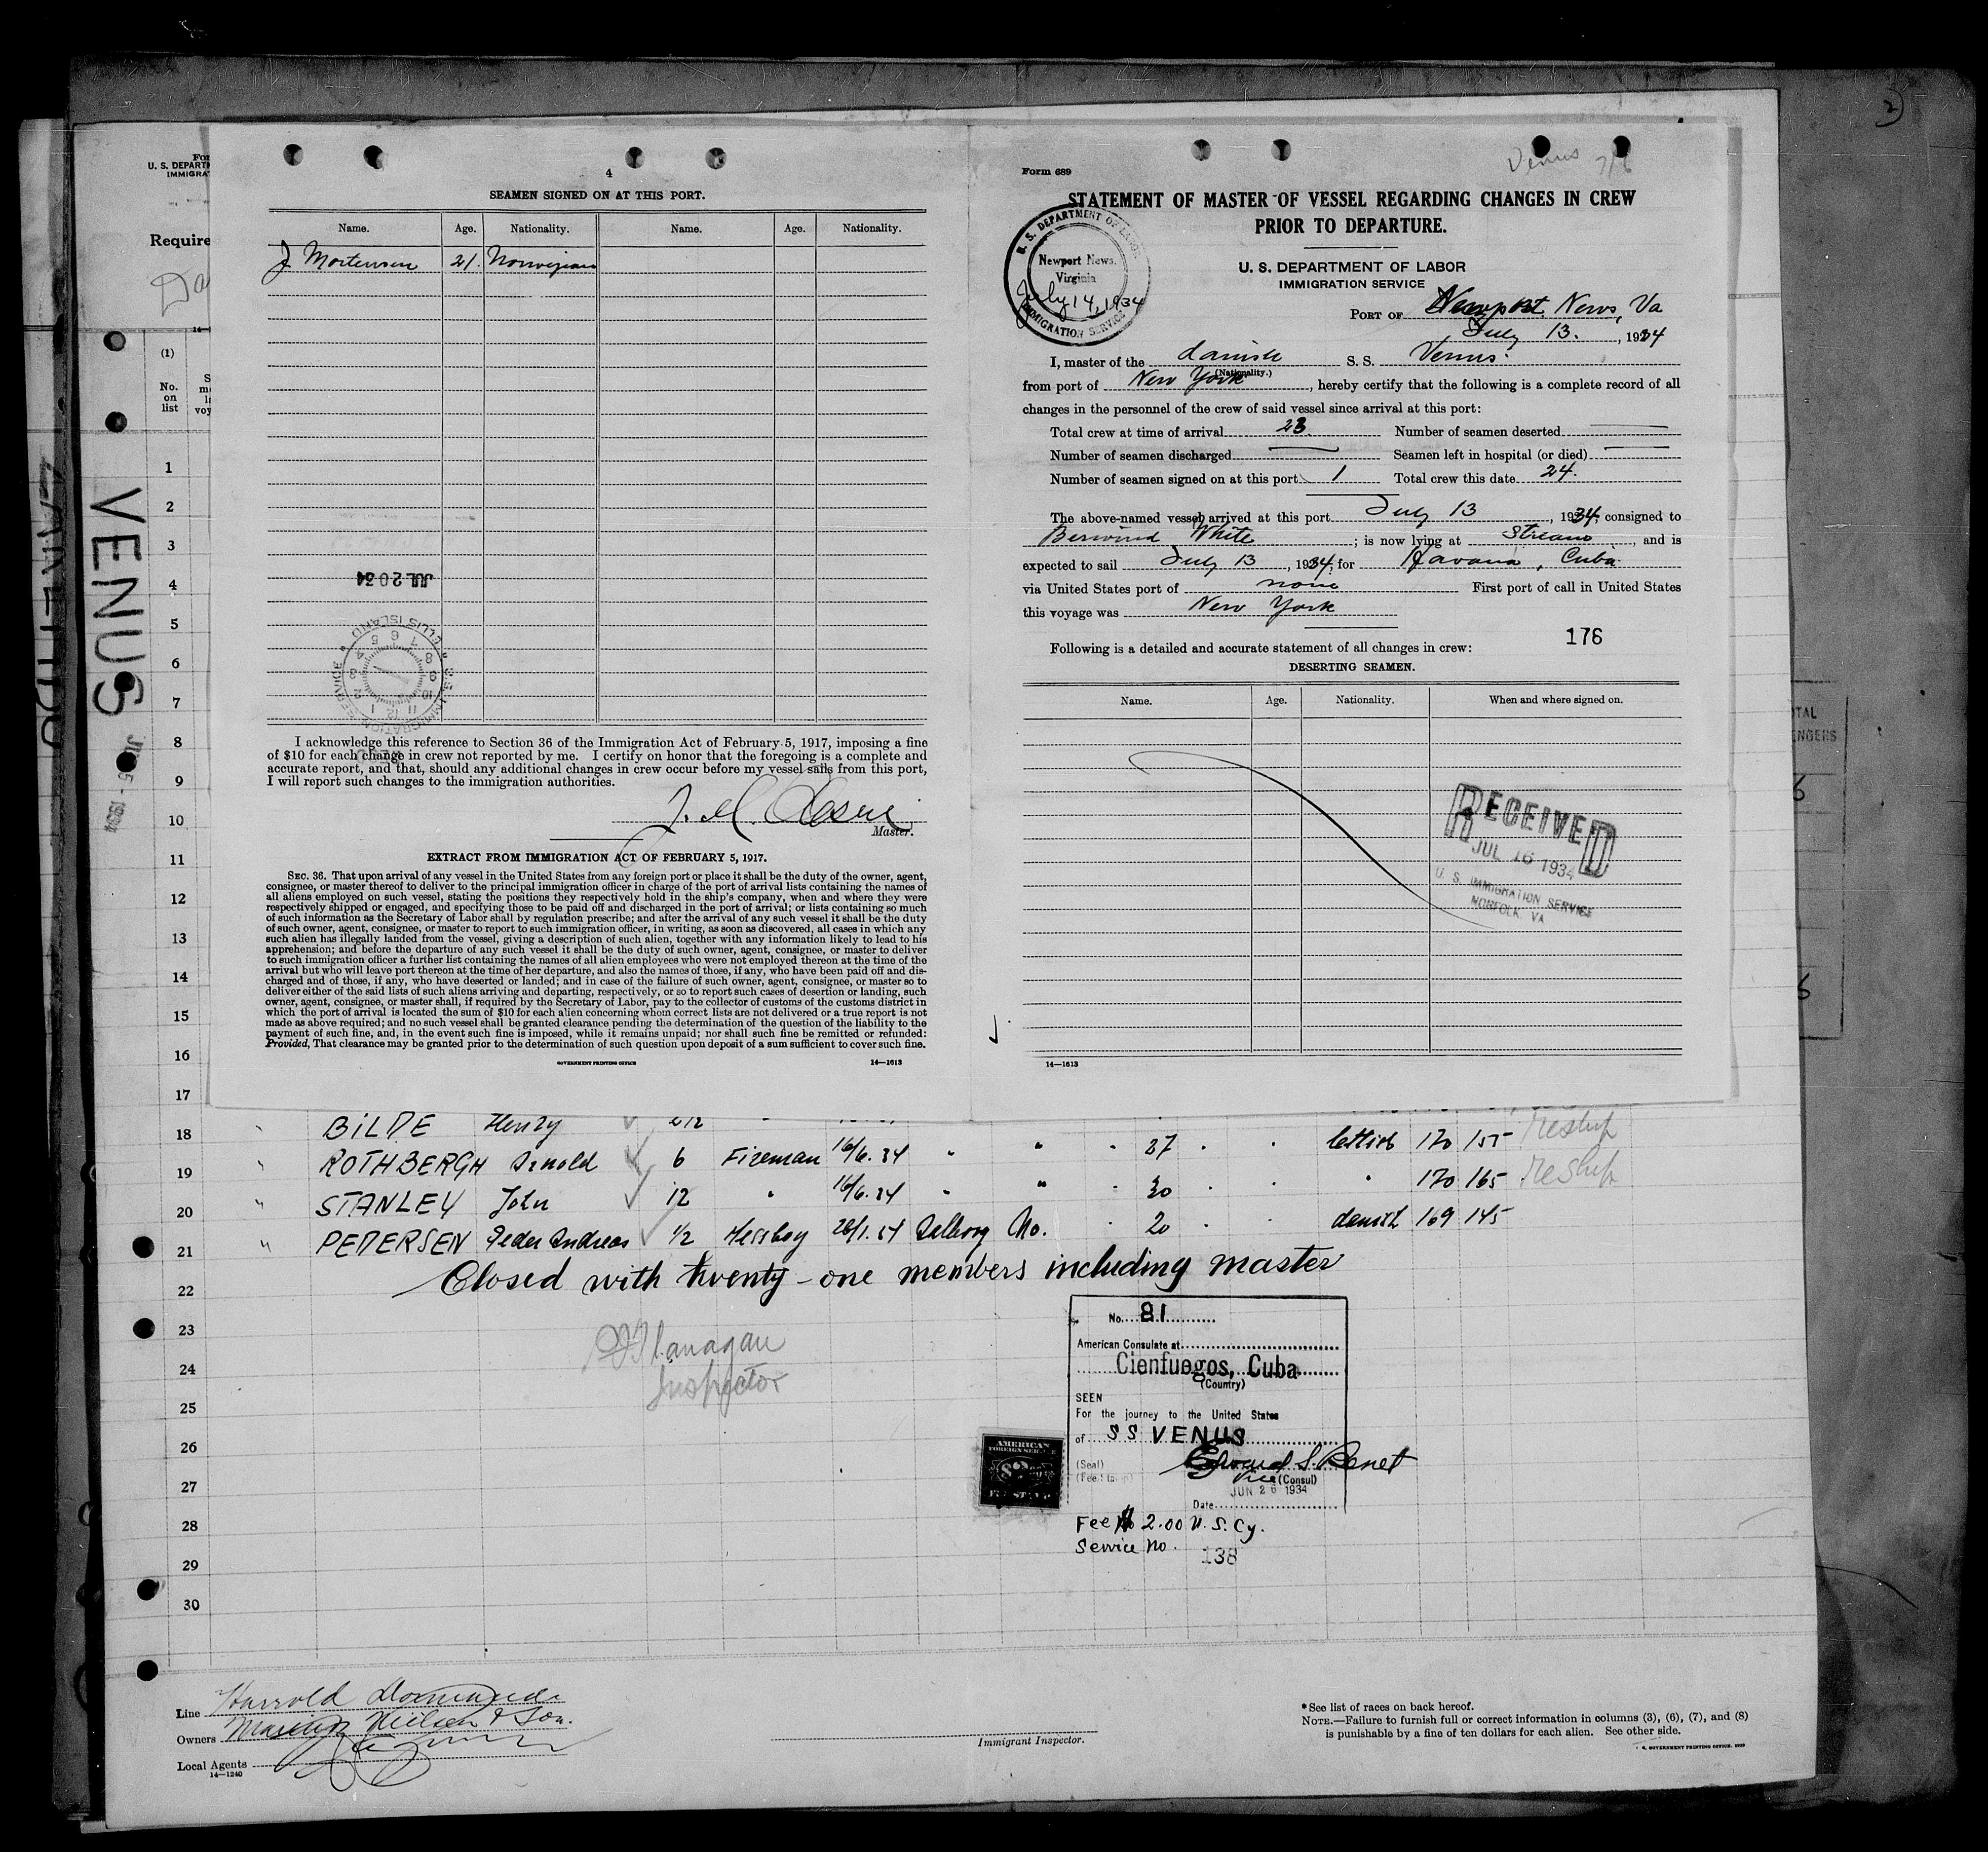 2
For
U. S. DEPARTM
IMMIGRA
Require
Da
14—1
(1)
No.
on
list
VENUS
1934
1
2
3
4
5
6
7
8
9
10
11
12
13
14
15
16
17
18
19
20
21
22
23
24
25
26
27
28
29
30
4
SEAMEN SIGNED ON AT THIS PORT.
Name. Age. Nationality. Name. Age. Nationality.
J Mortensen 21. Norwegian
JUL 20 34
ELLIS ISLAND
U.S. IMMIGRATION SERVICE
I acknowledge this reference to Section 36 of the Immigration Act of February 5, 1917, imposing a fine
of $10 for each change in crew not reported by me. I certify on honor that the foregoing is a complete and
accurate report, and that, should any additional changes in crew occur before my vessel sails from this port,
I will report such changes to the immigration authorities.
Master.
EXTRACT FROM IMMIGRATION ACT OF FEBRUARY 5, 1917.
SEC. 36. That upon arrival of any vessel in the United States from any foreign port or place it shall be the duty of the owner, agent,
consignee, or master thereof to deliver to the principal immigration officer in charge of the port of arrival lists containing the names of
all aliens employed on such vessel, stating the positions they respectively hold in the ship's company, when and where they were
respectively shipped or engaged, and specifying those to be paid off and discharged in the port of arrival; or lists containing so much
of such information as the Secretary of Labor shall by regulation prescribe; and after the arrival of any such vessel it shall be the duty
of such owner, agent, consignee, or master to report to such immigration officer, in writing, as soon as discovered, all cases in which any
such alien has illegally landed from the vessel, giving a description of such alien, together with any information likely to lead to his
apprehension; and before the departure of any such vessel it shall be the duty of such owner, agent, consignee, or master to deliver
to such immigration officer a further list containing the names of all alien employees who were not employed thereon at the time of the
arrival but who will leave port thereon at the time of her departure, and also the names of those, if any, who have been paid off and dis-
charged and of those, if any, who have deserted or landed; and in case of the failure of such owner, agent, consignee, or master so to
deliver either of the said lists of such aliens arriving and departing, respectively, or so to report such cases of desertion or landing, such
owner, agent, consignee, or master shall, if required by the Secretary of Labor, pay to the collector of customs of the customs district in
which the port of arrival is located the sum of $10 for each alien concerning whom correct lists are not delivered or a true report is not
made as above required; and no such vessel shall be granted clearance pending the determination of the question of the liability to the
payment of such fine, and, in the event such fine is imposed, while it remains unpaid; nor shall such fine be remitted or refunded:
Provided, That clearance may be granted prior to the determination of such question upon deposit of a sum sufficient to cover such fine.
GOVERNMENT PRINTING OFFICE 14—1613
Venus 7/6
Form 689
STATEMENT OF MASTER OF VESSEL REGARDING CHANGES IN CREW
PRIOR TO DEPARTURE.
U. S. DEPARTMENT OF LABOR
IMMIGRATION SERVICE
U. S. DEPARTMENT OF LABOR
Newport News.
Virginia
July 14, 1934
IMMIGRATION SERVICE
PORT OF Newport News, Va
July 13. , 1934
I, master of the danish S. S. Venus.
(Nationality.)
from port of New York, hereby certify that the following is a complete record of all
changes in the personnel of the crew of said vessel since arrival at this port:
Total crew at time of arrival 23. Number of seamen deserted
Number of seamen discharged Seamen left in hospital (or died)
Number of seamen signed on at this port 1 Total crew this date 24.
The above-named vessel arrived at this port July 13, 1934, consigned to
Berwind White; is now lying at Stream, and is
expected to sail July 13, 1934, for Havana, Cuba
via United States port of none First port of call in United States
this voyage was New York
176
Following is a detailed and accurate statement of all changes in crew:
DESERTING SEAMEN.
Name. Age. Nationality. When and where signed on.
RECEIVED
JUL 16 1934
U. S. IMMIGRATION SERVICE
NORFOLK, VA
14—1613
TAL
NGERS
6
6
BILDE Henry 2 1/2 reship
ROTHBERGH Arnold 6 Fireman 16/6.34 " " " 37 " " lettish 170 155 reship
STANLEY John 12 " 16/6.34 " " " 30 " " " 170 165
PEDERSEN Peder Andreas 1/2 Messboy 26/1.34 Aalborg No. " 20 " " danish 169 145
Closed with twenty-one members including master
Flanagan
Inspector
No. 81
American Consulate at
Cienfuegos, Cuba
(Country)
SEEN
For the journey to the United States
of SS VENUS
(Seal)
Edward S. Benet
Vice (Consul)
JUN 26 1934
Date
AMERICAN
FOREIGN SERVICE
$2
FEE STAMP
Fee $ 2.00 U.S. Cy.
Service No. 138
Line Harrold
Owners Nielsen & Son.
Local Agents
14—1240
Immigrant Inspector.
*See list of races on back hereof.
NOTE.—Failure to furnish full or correct information in columns (3), (6), (7), and (8)
is punishable by a fine of ten dollars for each alien. See other side.
U. S. GOVERNMENT PRINTING OFFICE: 1929